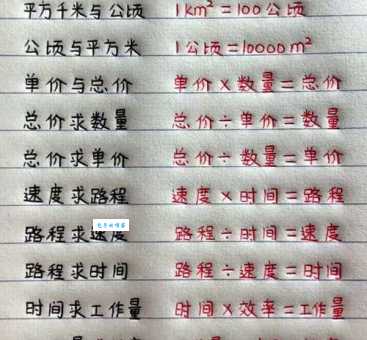 平方千米与公顷 1km²=100公顷
公顷与平方米 1公顷=10000m²
单价与总价 单价×数量=总价
总价求数量 总价÷单价=数量
总价求单价 总价÷数量=单价
速度求路程 速度×时间=路程
路程求速度 路程÷时间=速度
路程求时间 路程÷速度=时间
时间求工作量 时间×效率=工作量